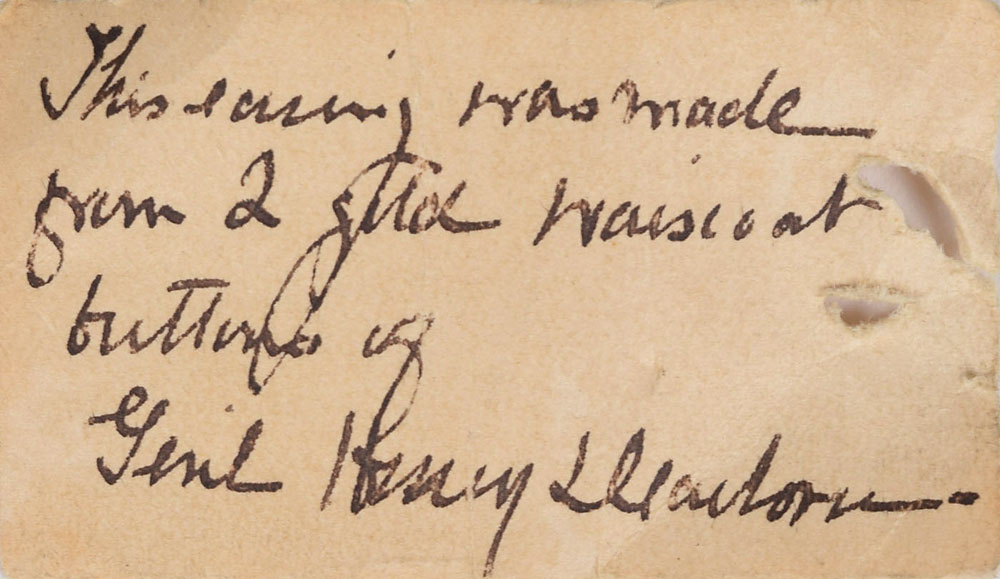 This casing was made
from 2 gilld waiscoat
buttons of
Genl Henry Dearborn